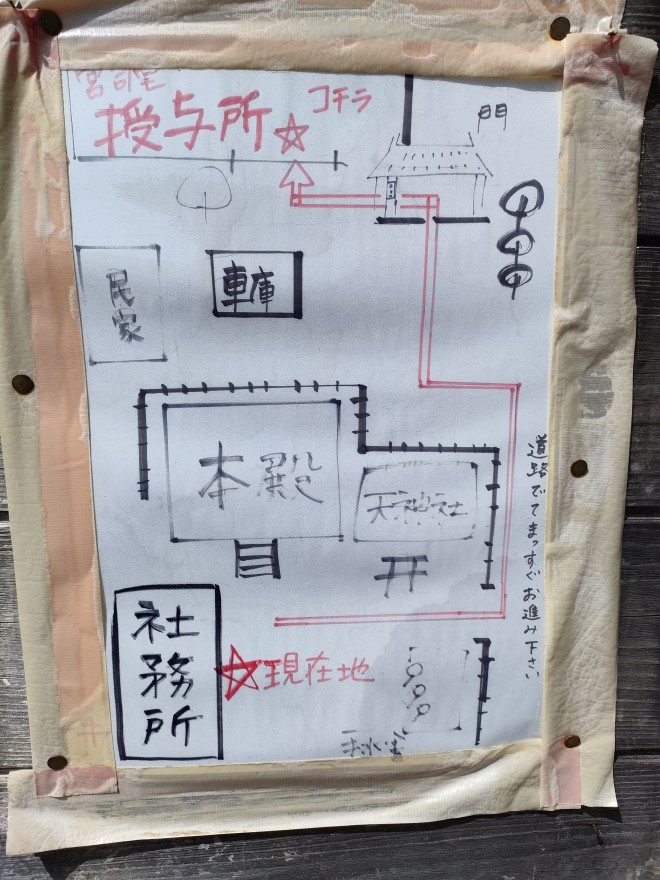 宮司宅
授与所
コチラ
門
民家
車庫
本殿
天神社
道路でてまっすぐお進み下さい
社務所
現在地